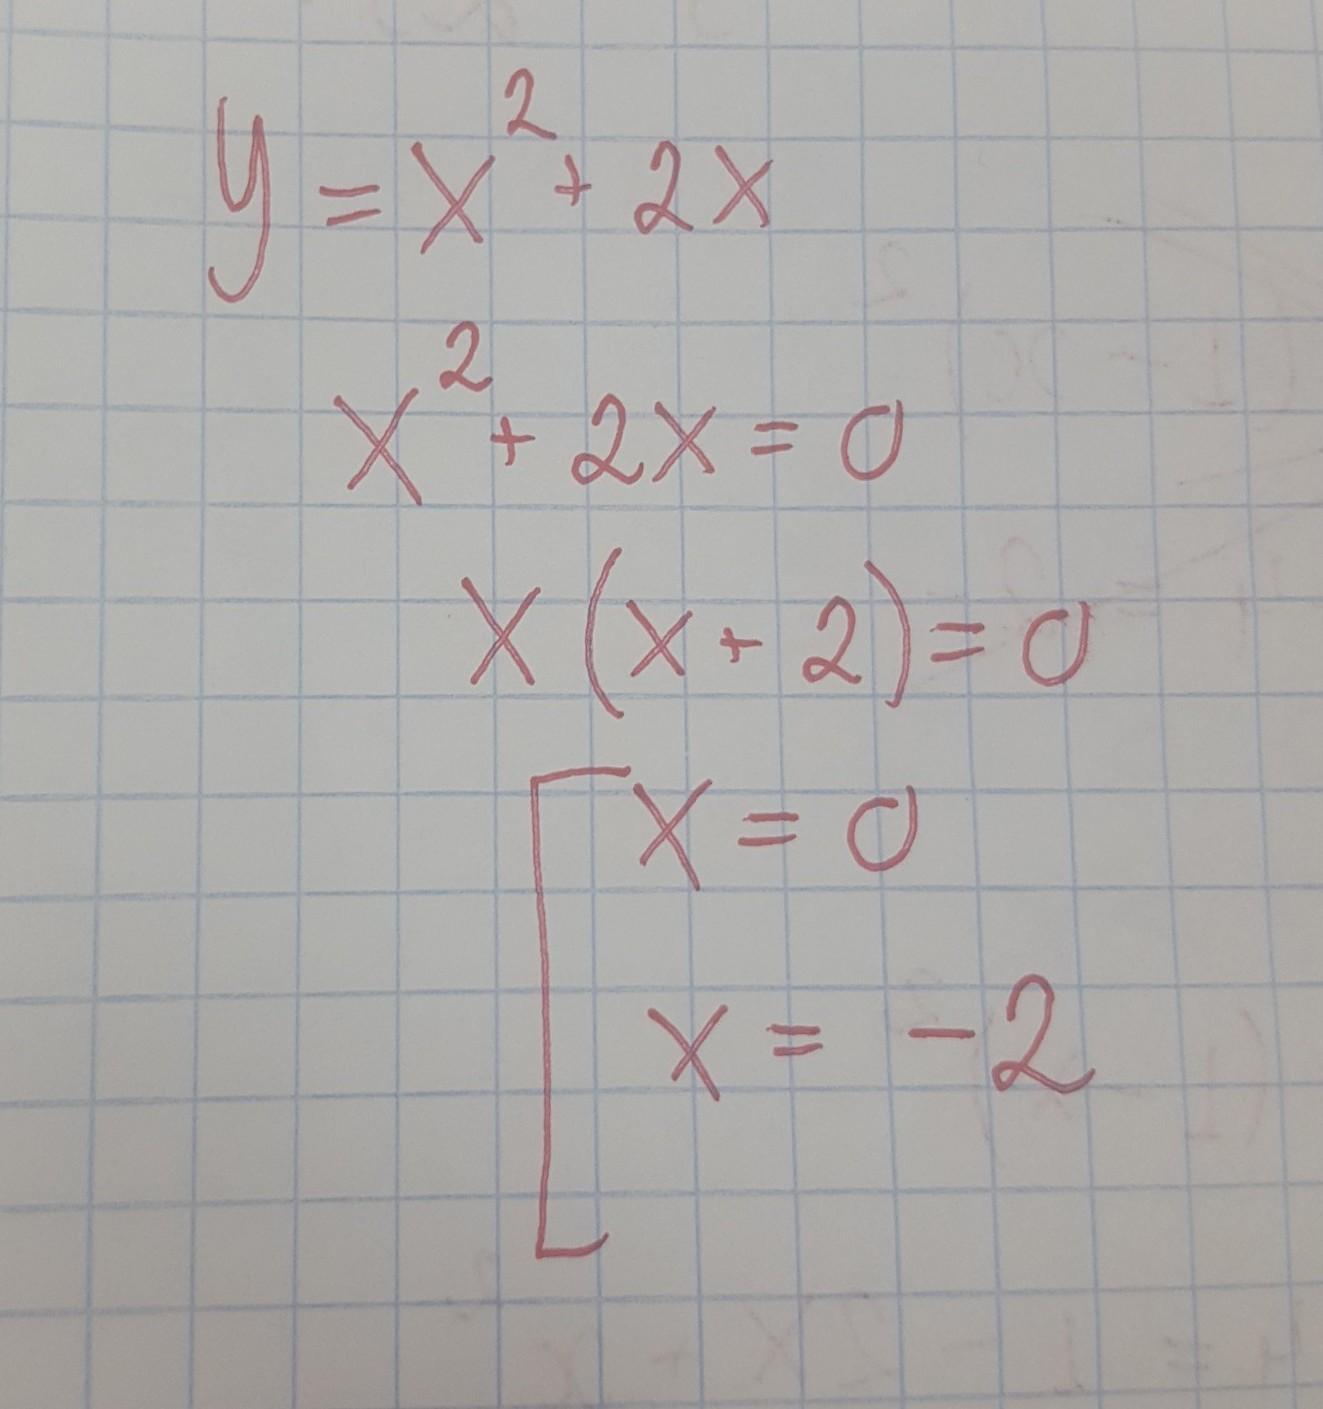 y = x² + 2x
x² + 2x = 0
x (x + 2) = 0
[ x = 0
x = -2